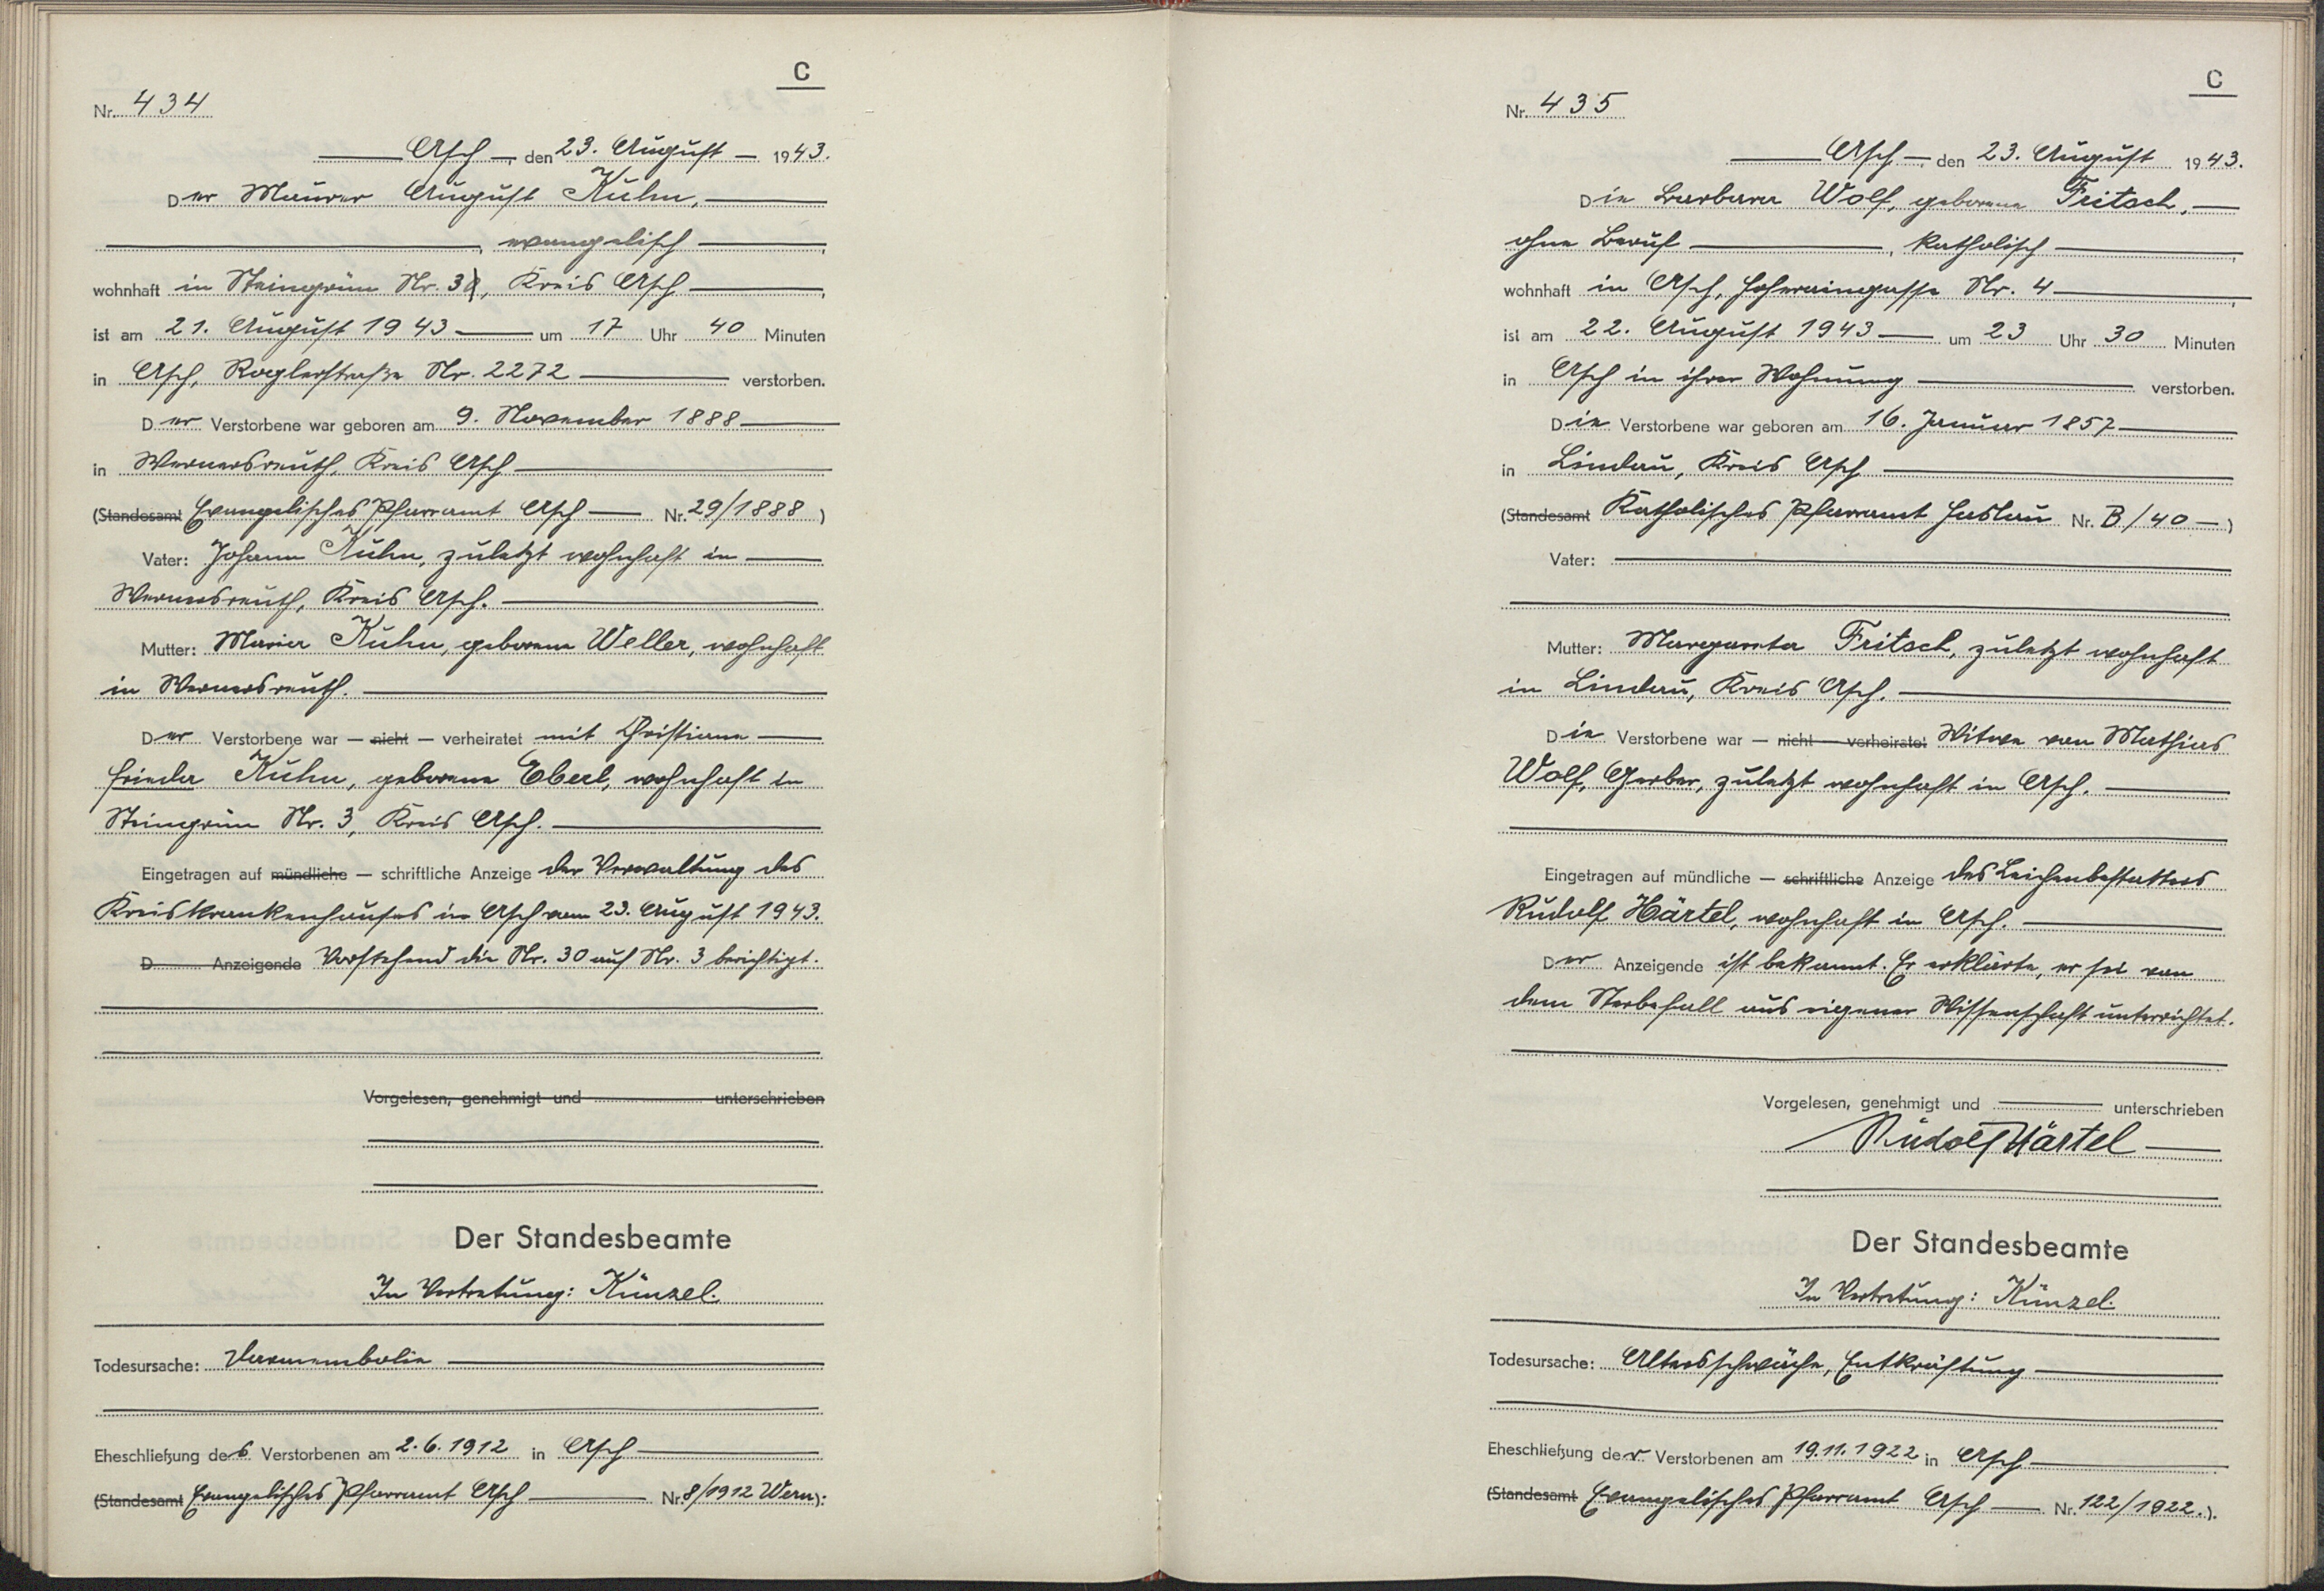 C
Nr. 434
Asch, den 23. August 1943.
Der Maurer August Kühn,
, evangelisch,
wohnhaft in Steingrün Nr. 30, Kreis Asch,
ist am 21. August 1943 um 17 Uhr 40 Minuten
in Asch, Roglerstraße Nr. 2272 verstorben.
Der Verstorbene war geboren am 9. November 1888
in Wernersreuth, Kreis Asch
(Standesamt Evangelisches Pfarramt Asch Nr. 29/1888)
Vater: Johann Kühn, zuletzt wohnhaft in
Wernersreuth, Kreis Asch.
Mutter: Maria Kühn, geborene Weller, wohnhaft
in Wernersreuth.
Der Verstorbene war — nicht — verheiratet mit Christiane
Frieda Kühn, geborene Eberl, wohnhaft in
Steingrün Nr. 3, Kreis Asch.
Eingetragen auf mündliche — schriftliche Anzeige der Verwaltung des
Kreiskrankenhauses in Asch vom 23. August 1943.
D Anzeigende Vorstehend die Nr. 30 auf Nr. 3 berichtigt.
Vorgelesen, genehmigt und unterschrieben
Der Standesbeamte
In Vertretung: Künzel.
Todesursache:
Eheschließung des Verstorbenen am 2.6.1912 in Asch
(Standesamt Evangelisches Pfarramt Asch Nr. 8/1912 Wern):
C
Nr. 435
Asch, den 23. August 1943.
Die Barbara Wolf, geborene Fritsch,
ohne Beruf, katholisch,
wohnhaft in Asch, Hoheraingasse Nr. 4,
ist am 22. August 1943 um 23 Uhr 30 Minuten
in Asch in ihrer Wohnung verstorben.
Die Verstorbene war geboren am 16. Januar 1857
in Lindau, Kreis Asch
(Standesamt Katholisches Pfarramt Haslau Nr. B/40 —)
Vater:
Mutter: Margareta Fritsch, zuletzt wohnhaft
in Lindau, Kreis Asch.
Die Verstorbene war — nicht — verheiratet Witwe von Mathias
Wolf, Gerber, zuletzt wohnhaft in Asch.
Eingetragen auf mündliche — schriftliche Anzeige des Leichenbestatters
Rudolf Härtel, wohnhaft in Asch.
Der Anzeigende ist bekannt. Er erklärte, er sei von
dem Sterbefall aus eigener Wissenschaft unterrichtet.
Vorgelesen, genehmigt und unterschrieben
Rudolf Härtel
Der Standesbeamte
In Vertretung: Künzel.
Todesursache: Altersschwäche, Entkräftung
Eheschließung der Verstorbenen am 19.11.1922 in Asch
(Standesamt Evangelisches Pfarramt Asch Nr. 122/1922.).